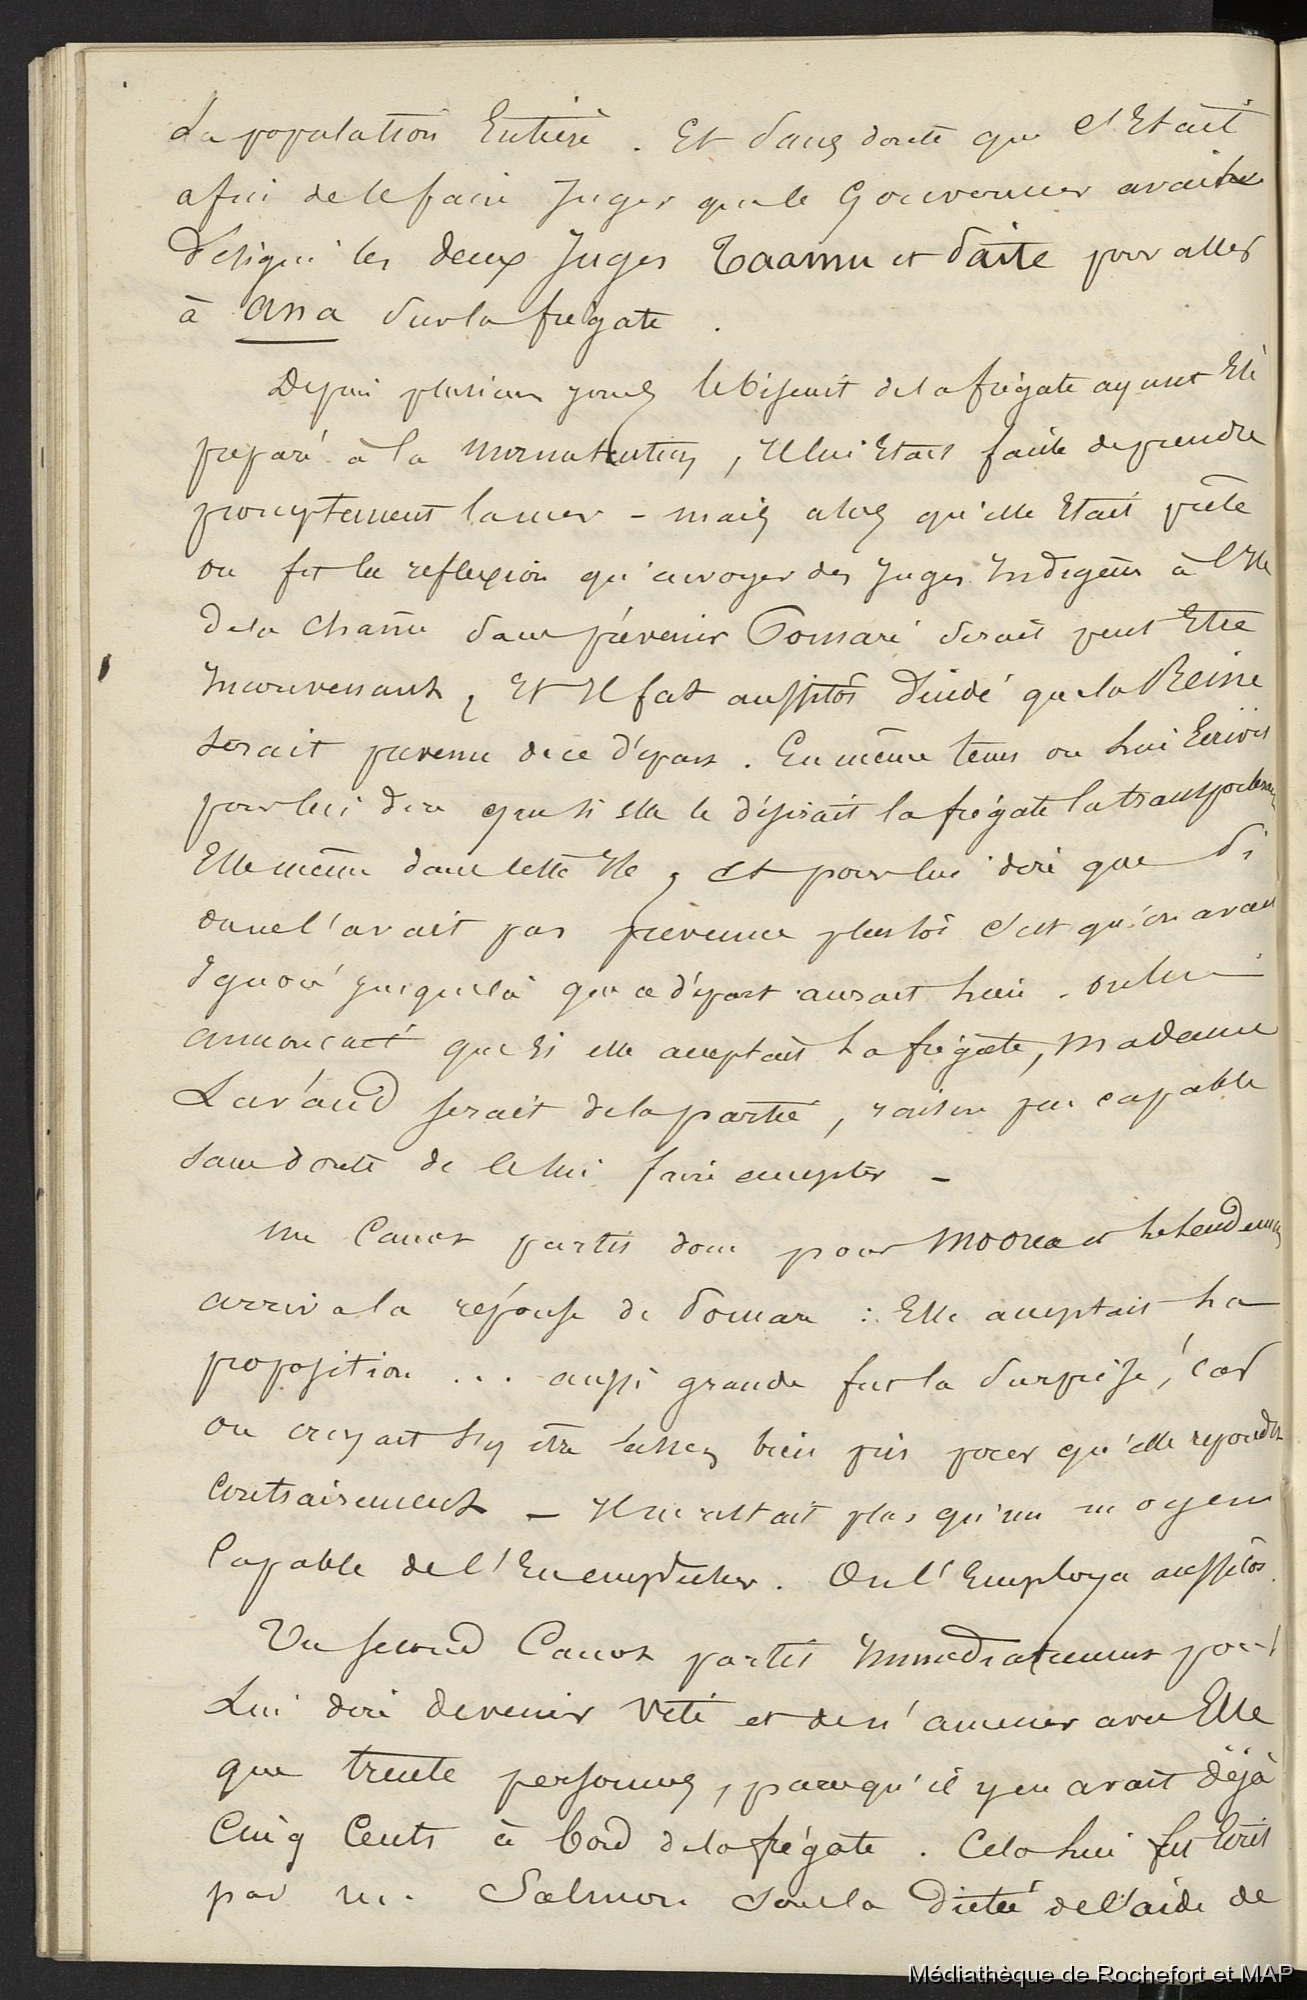 La population Entière. Et Sans doute que c'Etait
afin de le faire Juger que le Gouverneur avait
Désigné les deux Juges Taamu et Paite pour aller
à Ana Sur la frégate.
Depuis plusieurs jours le biscuit de la frégate ayant Eté
préparé à la manutention, Il lui Etait facile de prendre
promptement la mer - mais alors qu'elle Etait prête
on fit la reflexion qu'envoyer des Juges Indigènes à l'Ile
de la Chaîne Sans prévenir Pomaré Serait peut Etre
Inconvenant, Et Il fut aussitôt Décidé que la Reine
serait prévenue de ce départ. En même tems on lui Ecrivit
pour lui dire que si elle le désirait la frégate la transporterait
Elle même dans cette Ile, Et pour lui dire que Si
on ne l'avait pas prévenue plustôt c'est qu'on avait
Ignoré jusque là que ce départ aurait lieu. on lui
annonçait que si elle acceptait la frégate, Madame
Lavaud serait de la partie, raison peu capable
sans doute de le lui faire accepter -
un Canot partit donc pour Moorea et le lendemain
arriva la réponse de Pomaré : Elle acceptait la
proposition ... aussi grande fut la Surprise, car
on croyait s'y être assez bien pris pour qu'elle répondit
Contrairement - Il ne restait plus qu'un moyen
Capable de l'En empêcher. On l'Employa aussitôt.
Un second Canot partit Immédiatement pour
Lui dire de venir Vite et de n'amener avec Elle
que trente personnes, parcequ'il y en avait déjà
Cinq Cents à bord de la frégate. Cela lui fut Ecrit
par M. Salmon Sous la Dictée de l'aide de
Médiathèque de Rochefort et MAP